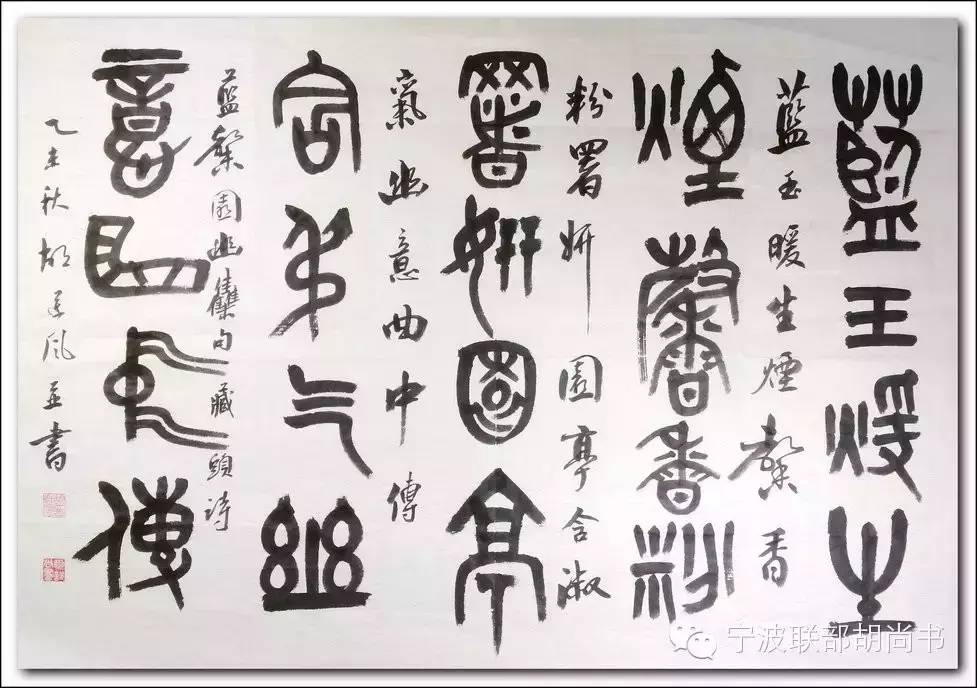 藍玉暖生
藍玉暖生煙馨香
煙馨香粉
粉署妍園亭含淑
署妍園亭
氣幽意曲中傳
含淑气幽
藍馨園幽雧句藏頭詩
意曲中傳
乙未秋胡风並書
宁波联部胡尚书